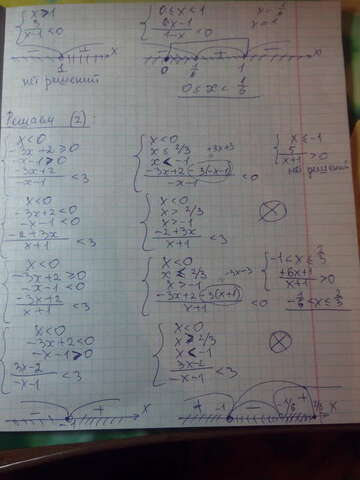 { x ≥ 1
3
x-1 < 0
- + x
1
нет решений
{ 0 ≤ x < 1
6x-1
1-x < 0
x = 1/6
x = 1
0 1/6 1
0 ≤ x < 1/6
Решаем (2):
{ x < 0
-3x+2 ≥ 0
-x-1 ≥ 0
-3x+2
-x-1 < 3
{ x < 0
x ≤ 2/3 +3x+3
x < -1
-3x+2 -3(-x-1)
-x-1 < 0
{ x ≤ -1
5
x+1 > 0
нет решений
{ x < 0
-3x+2 < 0
-x-1 < 0
-2+3x
x+1 < 3
{ x < 0
x > 2/3
x > -1
-2+3x
x+1 < 3
{ x < 0
-3x+2 ≥ 0
-x-1 < 0
-3x+2
x+1 < 3
{ x < 0 -3x-3
x ≤ 2/3
x > -1
-3x+2 -3(x+1)
x+1 < 0
{ -1 < x ≤ 2/3
+6x+1
x+1 > 0
-1/6 < x ≤ 2/3
{ x < 0
-3x+2 < 0
-x-1 ≥ 0
3x-2
-x-1 < 3
{ x < 0
x ≥ 2/3
x < -1
3x-2
-x-1 < 3
- + x
-1
+ -1 - -1/6 + 2/3 x